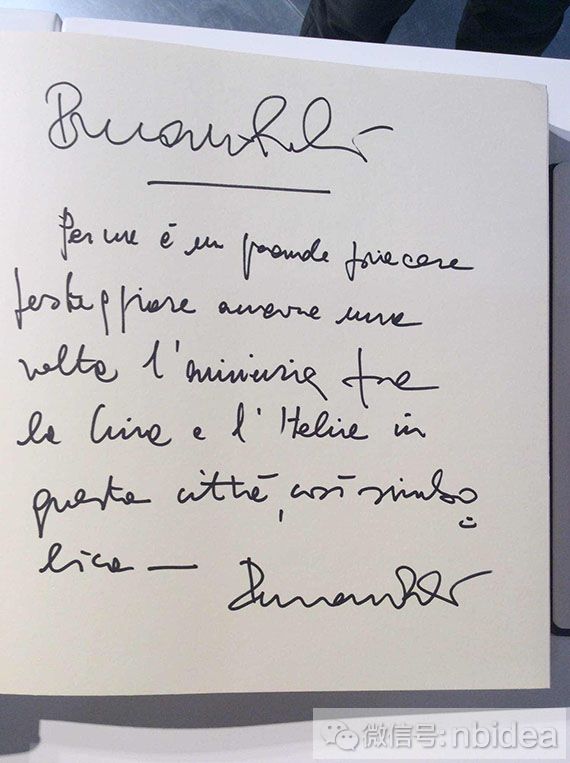 Per me è un grande piacere
festeggiare ancora una
volta l'amicizia fra
la Cina e l'Italia in
questa città, così simbo
lica —
微信号: nbidea